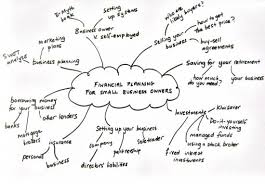 E-Myth
book
Setting
up systems
who are
likely buyers?
how to get
the best price?
Business owner
v self-employed
Marketing
plans
SWOT
analysis
business planning
Selling your
business
buy-sell
agreements
Saving for your retirement
how much
do you need?
your
business
FINANCIAL PLANNING
FOR SMALL BUSINESS OWNERS
borrowing money
for your business
banks
other lenders
mortgage
brokers
insurance
personal
business
Setting up your business
company
partnership
sole trader
directors liabilities
Investments
Kiwisaver
Do-it-yourself
investing
managed funds
using a stock broker
fixed interest
investments